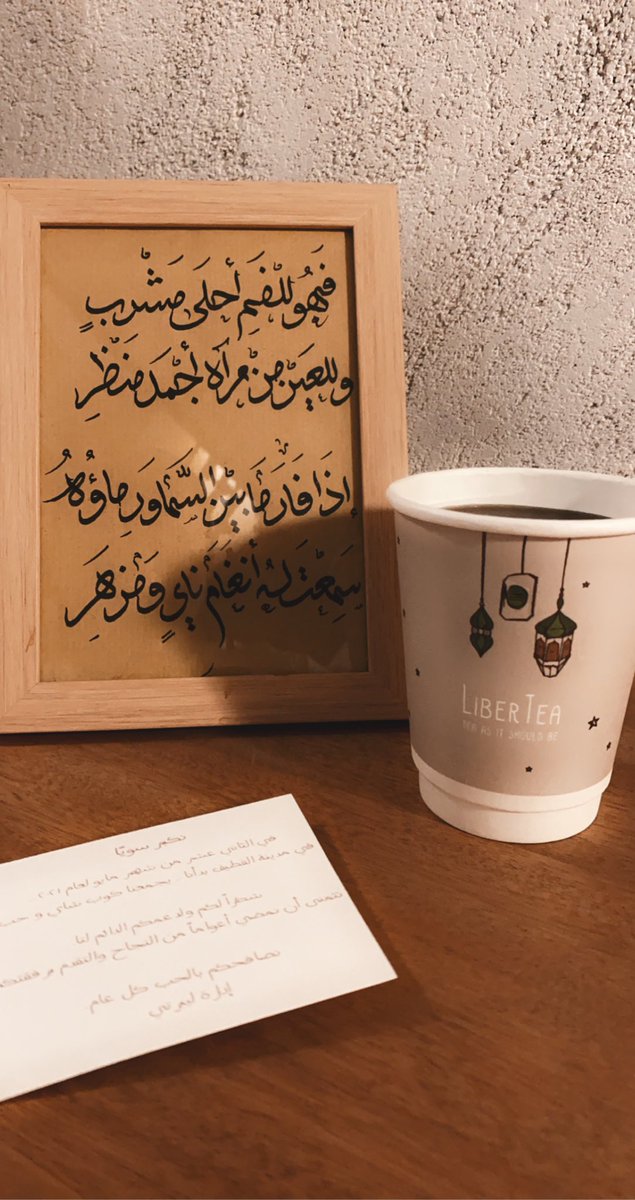 فَهُوَ لِلْفَمِ أَحْلَى مَشْرَبٍ
وَلِلعَيْنِ مِنْ مَرْآهُ أَجْمَدُ مَنْظَرِ
إِذَا فَارَ مَا بَيْنَ السَّمَاوَرِ مَاؤُهُ
سَمِعْتَ لَهُ أَنْغَامَ نَايٍ وَمَزْهَرِ
LIBERTEA
TEA AS IT SHOULD BE
نكبر سويًا
في الثاني عشر من شهر مايو لعام ٢٠٢١
في مدينة القطيف بدأنا.. يجمعنا كوب شاي و حب
شكراً لكم ولدعمكم الدائم لنا
نتمنى أن نمضي أعواماً من النجاح والتقدم برفقتكم
نصافحكم بالحب كل عام
إدارة ليبرتي